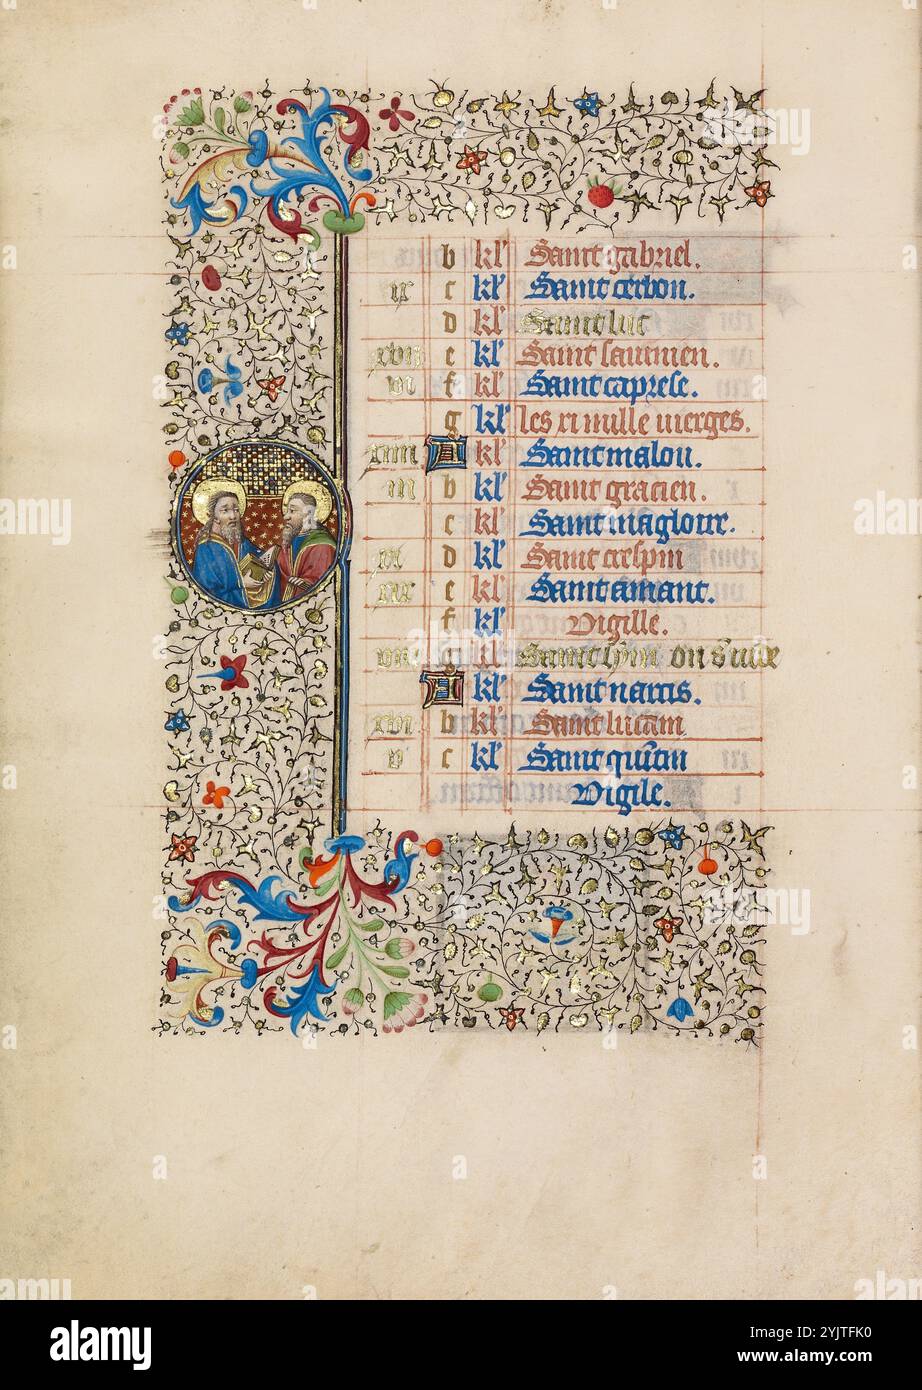 b kl' Saint gabriel.
ix c kl' Saint cerbon.
d kl' Saint luc
xvii e kl' Saint saurnien.
vi f kl' Saint caprese.
g kl' les xi mille vierges.
xiiii A kl' Saint malou.
iii b kl' Saint gracien.
c kl' Saint magloire.
xi d kl' Saint crespin
xix e kl' Saint amant.
f kl' Vigille.
viii g kl' Saint sȳm on s' iude
A kl' Saint narcis.
xvi b kl' Saint lucain
v c kl' Saint quītin
Vigile.
alamy
www.alamy.com
2YJTFK0